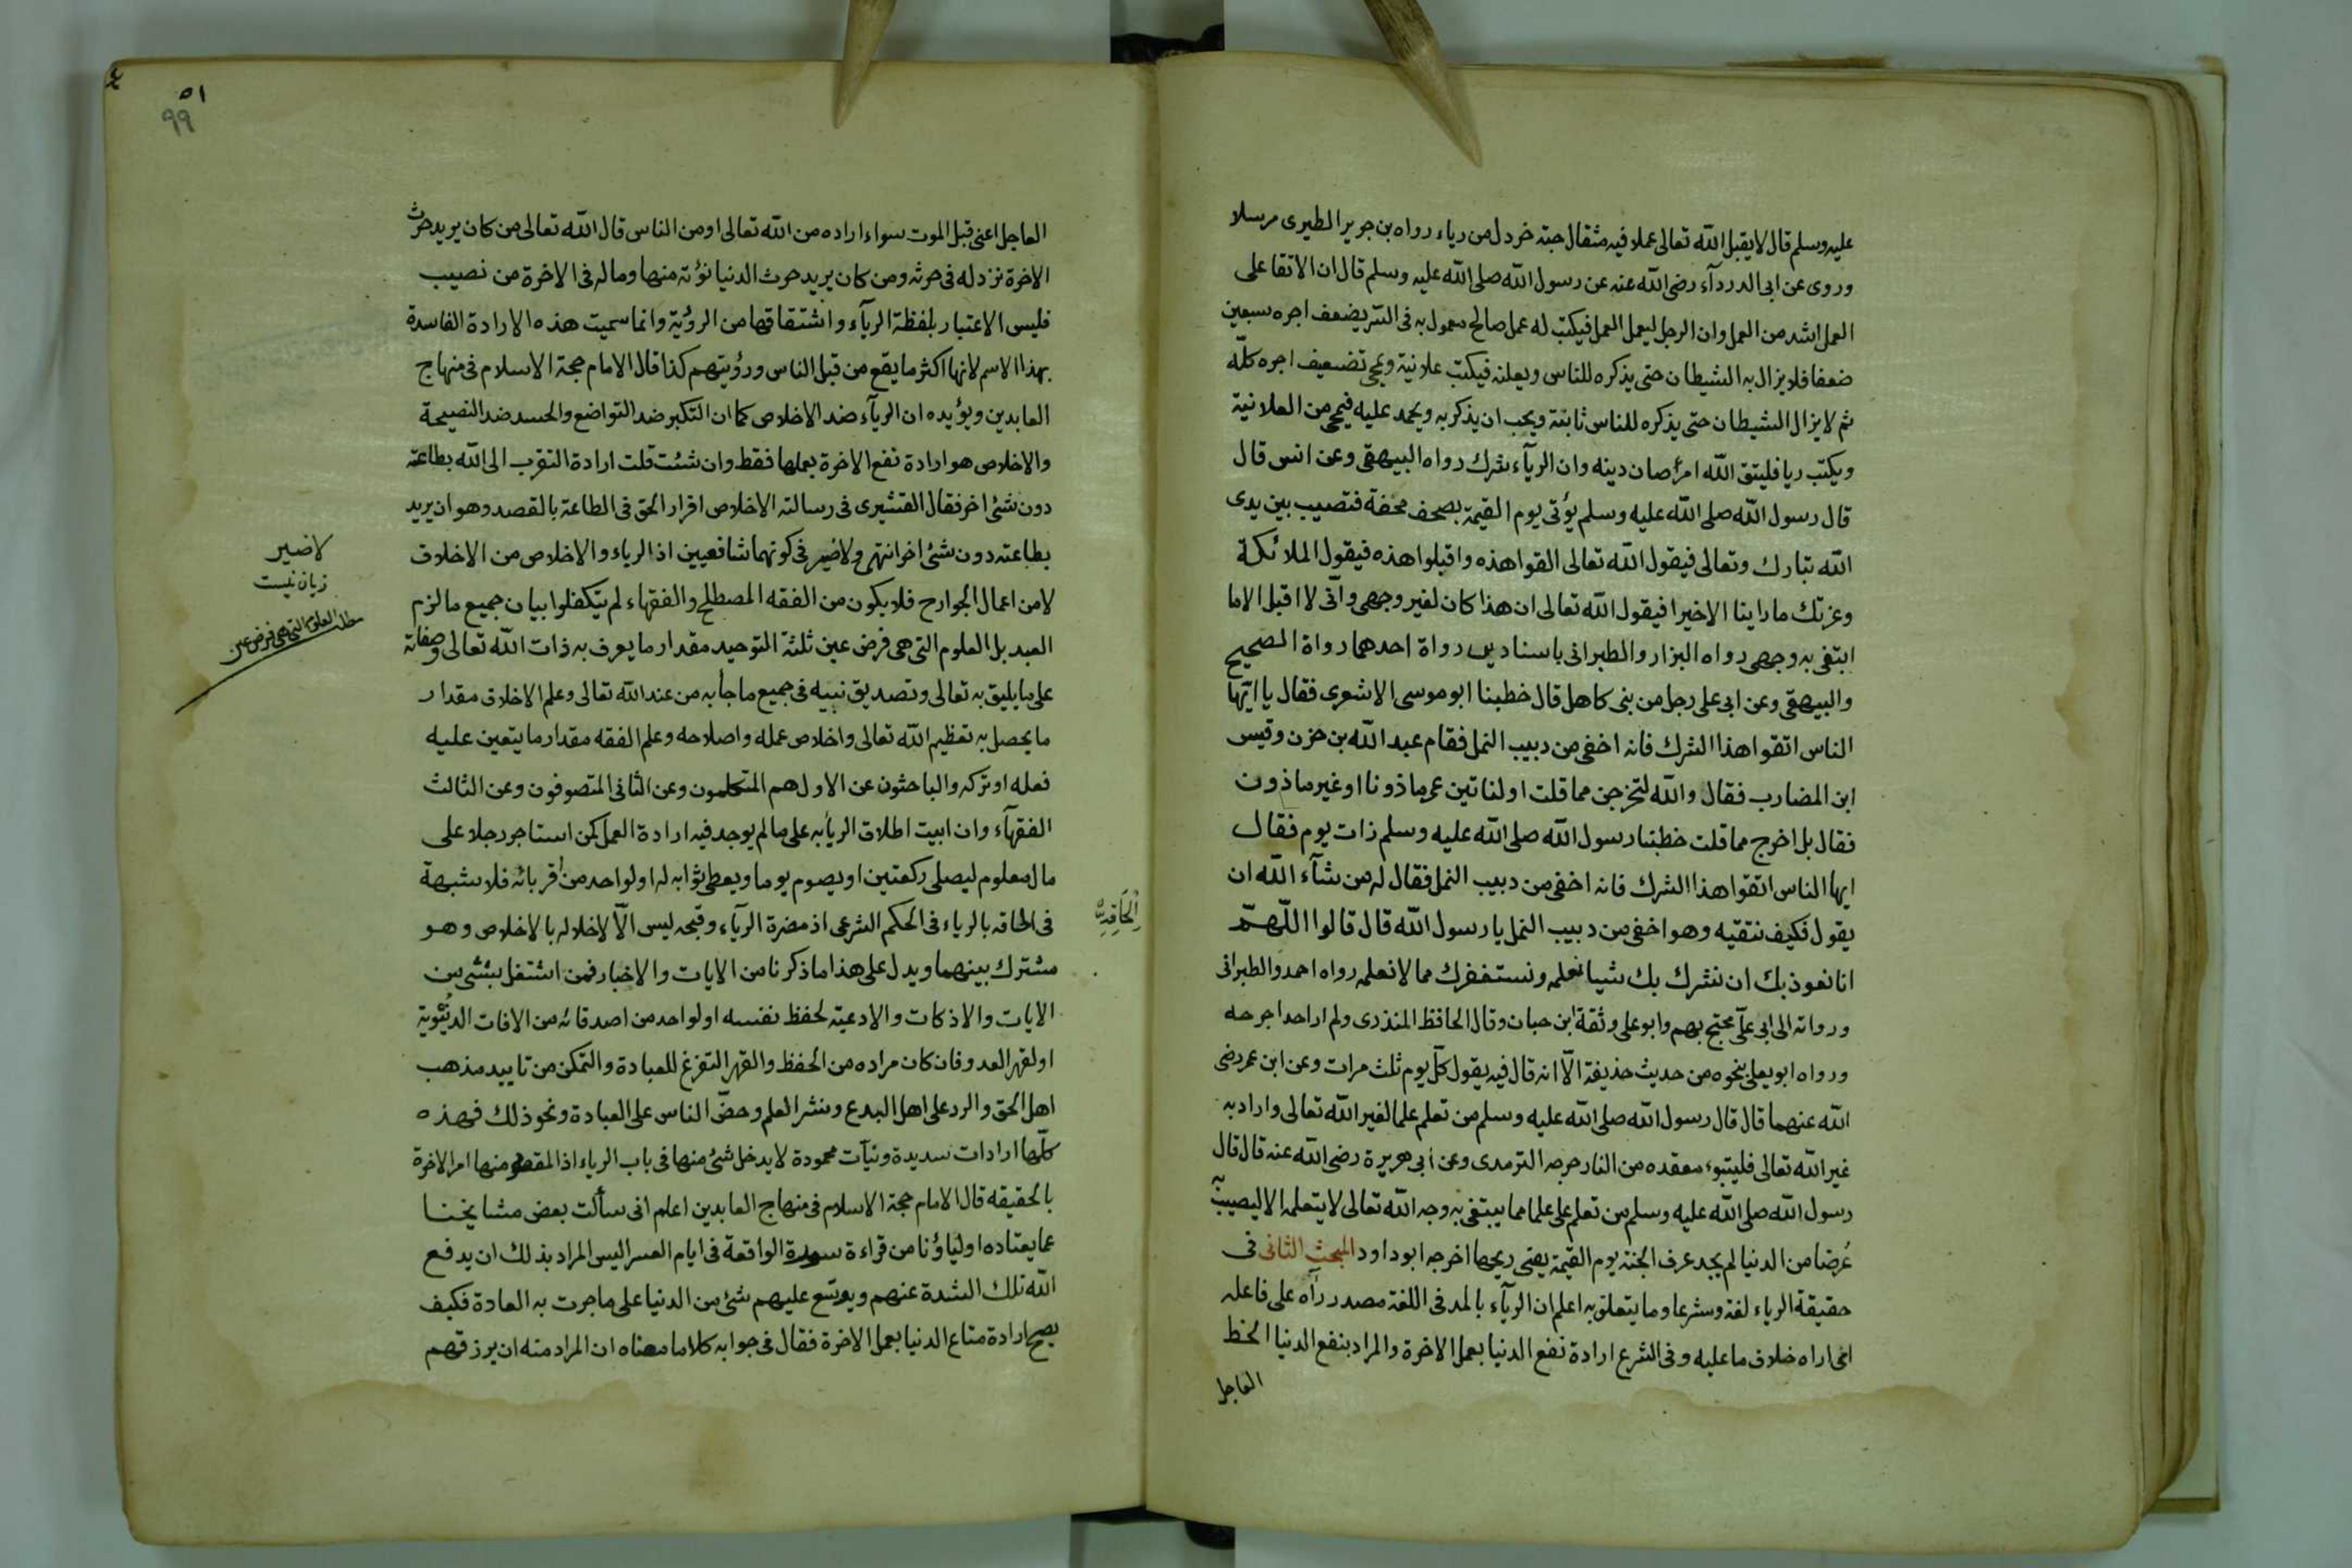 عليه وسلم قال لا يقبل الله تعالى عملا فيه مثقال حبة خردل من رياء رواه بن جرير الطبرى مرسلا
وروى عن ابى الدرداء رضى الله عنه عن رسول الله صلى الله عليه وسلم قال ان الاتقا على
العمل اشد من العمل وان الرجل ليعمل العمل فيكتب له عمل صالح معمول به فى السر يضعف اجره سبعين
ضعفا فلا يزال به الشيطان حتى يذكره للناس ويعلنه فيكتب علانية ويمحى تضعيف اجره كلّه
ثم لا يزال الشيطان حتى يذكره للناس ثانية ويحب ان يذكر به ويحمد عليه فيمحى من العلانية
ويكتب ريا فليتق الله امرأ صان دينه وان الريآء شرك رواه البيهقى وعن انس قال
قال رسول الله صلى الله عليه وسلم يؤتى يوم القيمة بصحف مختمة فتصيب بين يدى
الله تبارك وتعالى فيقول الله تعالى القوا هذه واقبلوا هذه فيقول الملائكة
وعزتك ما راينا الا خيرا فيقول الله تعالى ان هذا كان لغير وجهى وانى لا اقبل الا ما
ابتغى به وجهى رواه البزار والطبرانى باسنادين رواة احدهما رواة الصحيح
والبيهقى وعن ابى على رجل من بنى كاهل قال خطبنا ابو موسى الاشعرى فقال يا ايها
الناس اتقوا هذا الشرك فانه اخفى من دبيب النمل فقام عبد الله بن حزن وقيس
ابن المضارب فقال والله لتخرجن مما قلت او لناتين عمر ماذونا او غير ماذون
فقال بل اخرج مما قلت خطبنا رسول الله صلى الله عليه وسلم ذات يوم فقال
ايها الناس اتقوا هذا الشرك فانه اخفى من دبيب النمل فقال له من شآء الله ان
يقول فكيف نتقيه وهو اخفى من دبيب النمل يا رسول الله قال قالوا اللّهمّ
انا نعوذ بك ان نشرك بك شيا نعلمه ونستغفرك مما لا نعلمه رواه احمد والطبرانى
ورواته الى ابى علىّ محتج بهم وابو على وثقة ابن حبان وقال الحافظ المنذرى ولم ار احدا جرحه
ورواه ابو يعلى بنحوه من حديث حذيفة الّا انه قال فيه يقول كلّ يوم ثلث مرات وعن ابن عمر رضى
الله عنهما قال قال رسول الله صلى الله عليه وسلم من تعلم علما لغير الله تعالى واراد به
غير الله تعالى فليتبوء مقعده من النار خرجه الترمدى وعن أبى هريرة رضى الله عنه قال قال
رسول الله صلى الله عليه وسلم من تعلم على علما مما يبتغى به وجه الله تعالى لا يتعلمه الا ليصيب
عُرضا من الدنيا لم يجد عرف الجنة يوم القيمة يعنى ريحها اخرجه ابو داود المبحث الثانى فى
حقيقة الرياء لغة وشرعا وما يتعلق به اعلم ان الريآء بالمد فى اللغة مصدر رأه على فاعله
اى اراه خلاف ما عليه وفى الشرع ارادة نفع الدنيا بعمل الاخرة والمراد بنفع الدنيا الحظ
العاجل
٥١
٩٩
العاجل اعنى قبل الموت سواء اراده من الله تعالى او من الناس قال الله تعالى من كان يريد حرث
الاخرة نزد له فى حرثه ومن كان يريد حرث الدنيا نؤته منها وما له فى الاخرة من نصيب
فليس الاعتبار بلفظة الريآء واشتقاقها من الرؤية وانما سميت هذه الارادة الفاسدة
بهذا الاسم لانها اكثر ما يقع من قبل الناس ورؤيتهم كذا قال الامام حجة الاسلام فى منهاج
العابدين ويؤيده ان الريآء ضد الاخلاص كما ان التكبر ضد التواضع والحسد ضد النصيحة
والاخلاص هو ارادة نفع الاخرة بعملها فقط وان شئت قلت ارادة التقرب الى الله بطاعته
دون شئ اخر فقال القشيرى فى رسالته الاخلاص افراد الحق فى الطاعة بالقصد وهو ان يريد
بطاعته دون شئ اخر انتهى ولا ضير فى كونهما شافعيين اذ الرياء والاخلاص من الاخلاق
لا من اعمال الجوارح فلا يكون من الفقه المصطلح والفقهاء لم يتكفلوا بيان جميع ما لزم
العبد بل العلوم التى هى فرض عين ثلثة التوحيد مقدار ما يعرف به ذات الله تعالى وصفاته
على ما يليق به تعالى وتصديق نبيه فى جميع ما جأ به من عند الله تعالى وعلم الاخلاق مقدار
ما يحصل به تعظيم الله تعالى واخلاص عمله واصلاحه وعلم الفقه مقدار ما يتعين عليه
فعله او تركه والباحثون عن الاول هم المتكلمون وعن الثانى المتصوفون وعن الثالث
الفقهآء وان ابيت اطلاق الريأ به على ما لم يوجد فيه ارادة العمل كمن استاجر رجلا على
مال معلوم ليصلى ركعتين او يصوم يوما ويعطى ثوابه له او لواحد من أقربائه فلا شبهة
فى الحاقه بالرياء فى الحكم الشرعى اذ مضرة الريآء وقبحه ليس الّا لاخلاله بالاخلاص وهو
مشترك بينهما ويدل على هذا ما ذكرنا من الايات والاخبار فمن اشتغل بشئ من
الايات والاذكات والادعية لحفظ نفسه او لواحد من اصدقائه من الافات الدنيوية
او لقهر العدو فان كان مراده من الحفظ والقهر التفرغ للعبادة والتمكن من تاييد مذهب
اهل الحق والرد على اهل البدع ونشر العلم وحضّ الناس على العبادة ونحو ذلك فهذه
كلّها ارادات سديدة ونيآت محمودة لا يدخل شئ منها فى باب الرياء اذ المقصود منها امر الاخرة
بالحقيقه قال الامام حجة الاسلام فى منهاج العابدين اعلم انى سألت بعض مشايخنا
عما يعتاده اولياؤنا من قراءة سورة الواقعة فى ايام العسر اليس المراد بذلك ان يدفع
الله تلك الشدة عنهم ويوسّع عليهم شئ من الدنيا على ما جرت به العادة فكيف
يصح ارادة متاع الدنيا بعمل الاخرة فقال فى جوابه كلاما معناه ان المراد منه ان يرزقهم
لا ضير
زيان نيست
مطلب العلوم التى هى فرض عين